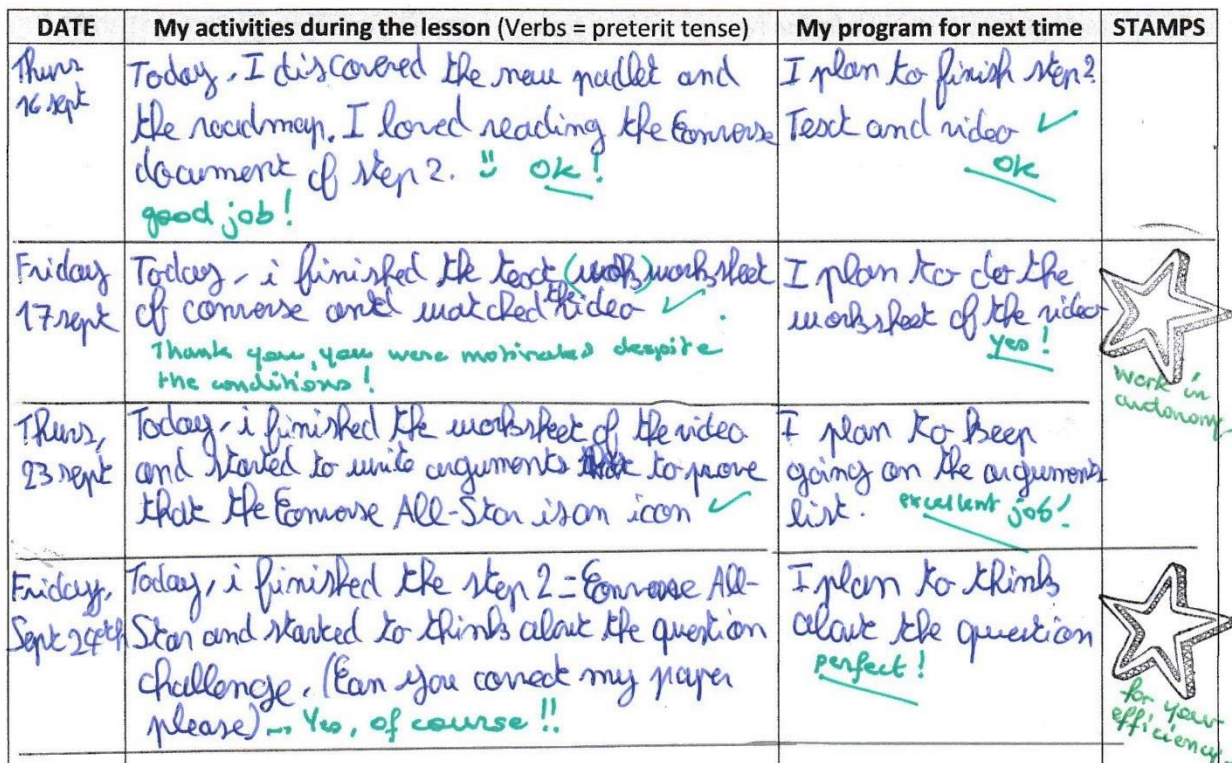 DATE My activities during the lesson (Verbs = preterit tense) My program for next time STAMPS
Thurs
16 sept
Today, I discovered the new padlet and
the roadmap. I loved reading the Converse
document of step 2. ok!
good job!
I plan to finish step 2
Text and video ✓
ok
Friday
17 sept
Today, i finished the text (work) worksheet
of converse and watched the video ✓.
Thank you, you were motivated despite
the conditions!
I plan to do the
worksheet of the video
yes!
work in
autonomy
Thurs,
23 sept
Today, i finished the worksheet of the video
and started to write arguments to prove
that the Converse All-Star is an icon ✓
I plan to keep
going on the arguments
list. excellent job!
Friday,
Sept 24th
Today, i finished the step 2 = Converse All-
Star and started to think about the question
challenge. (Can you correct my paper
please) → Yes, of course!!
I plan to think
about the question
perfect!
for your
efficiency